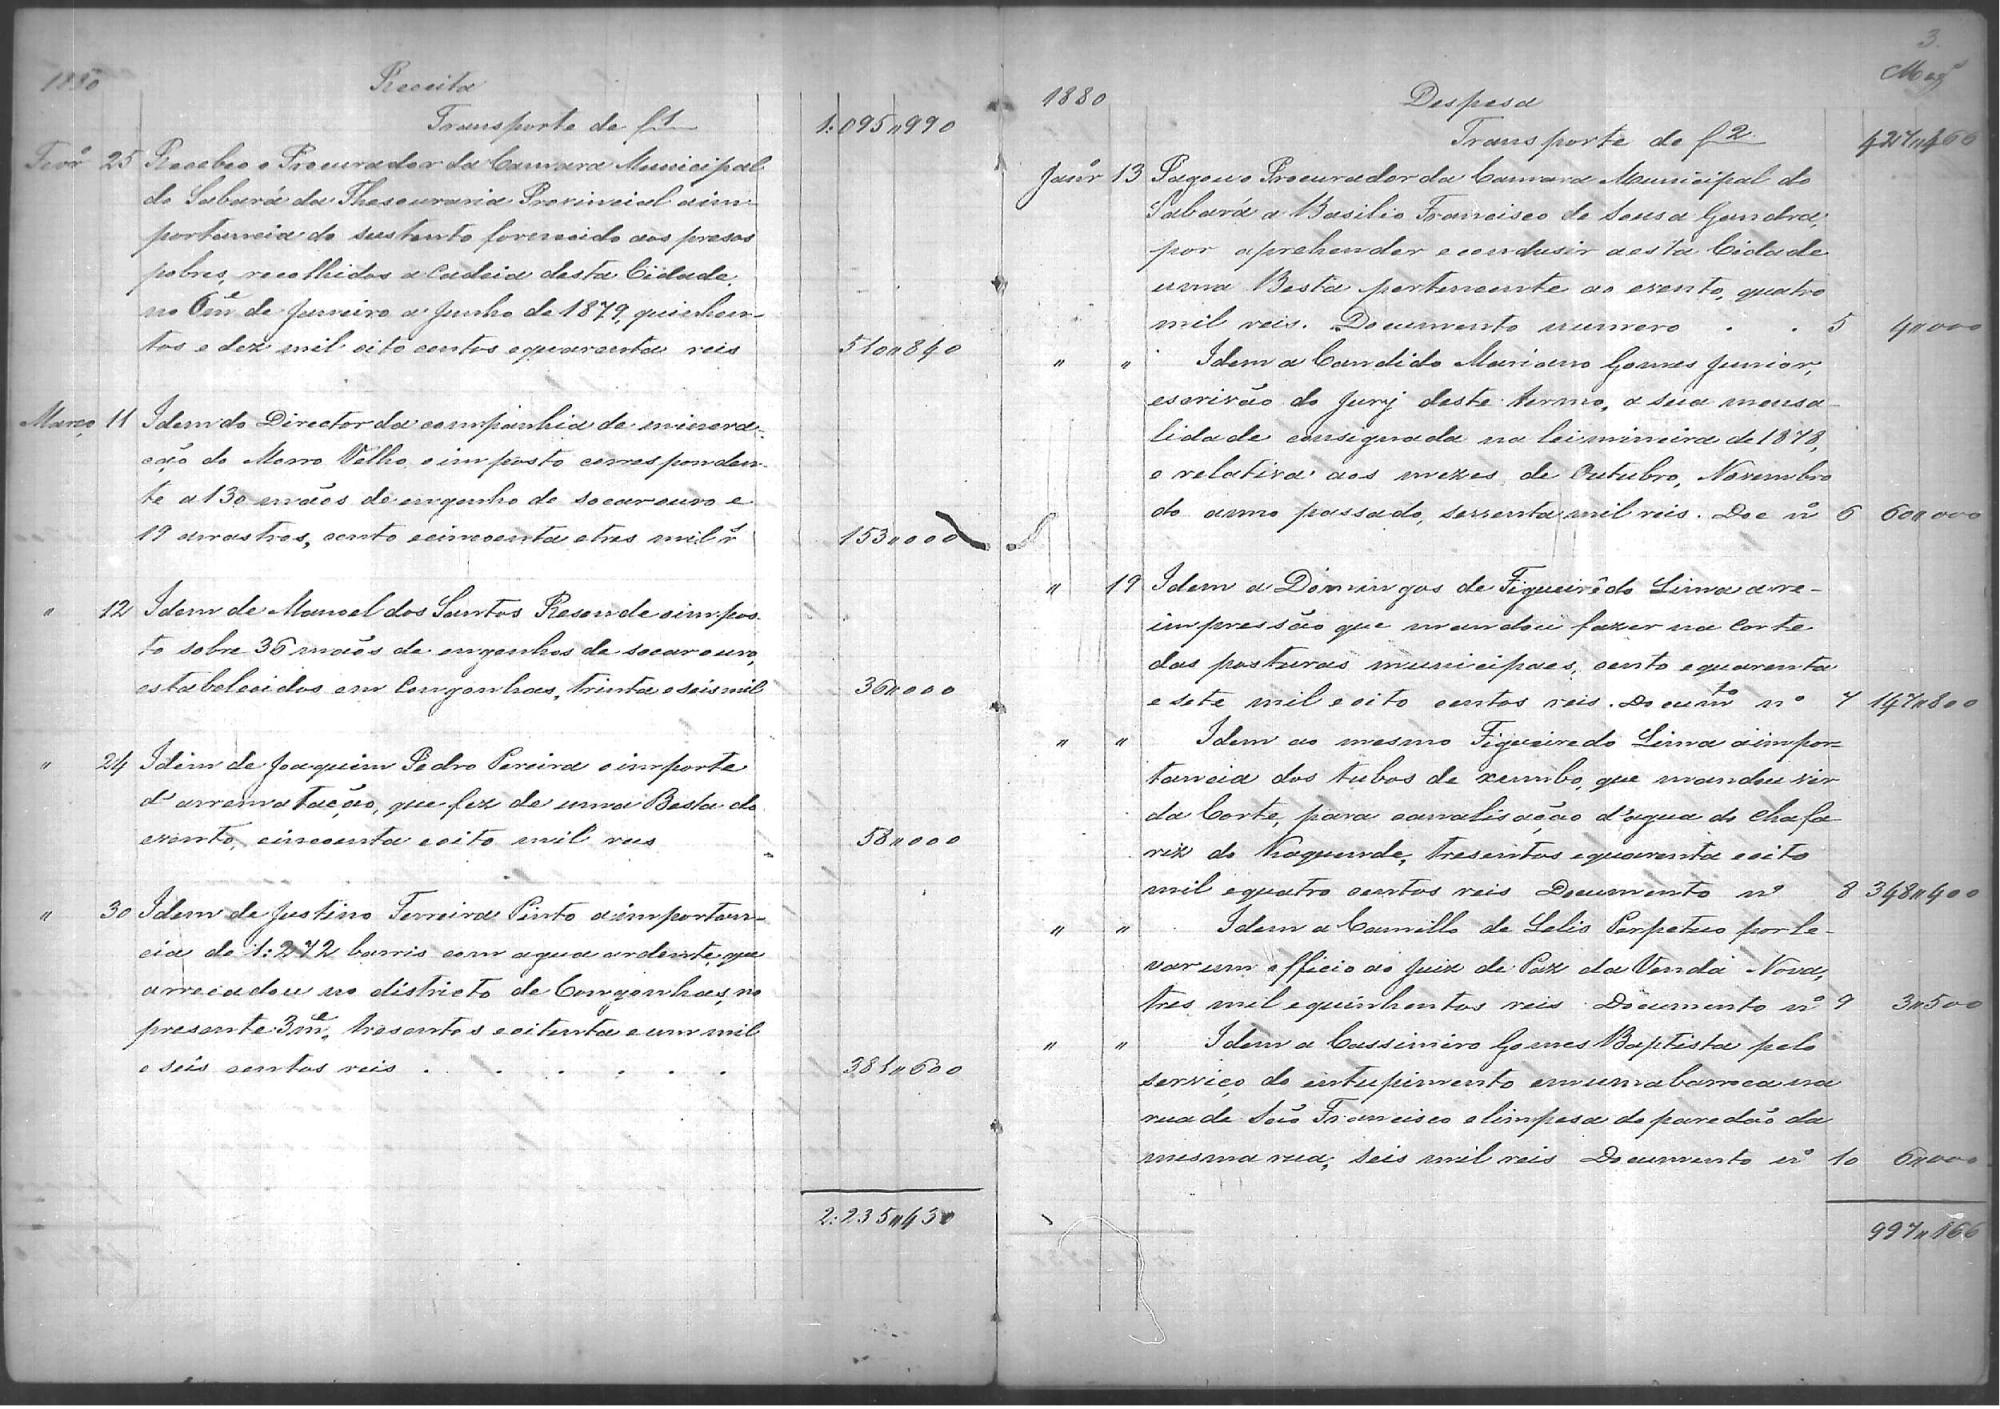 1880
Receita
Transporte de f 1
1:095"990
Fevr.º 25 Recebeo o Procurador da Camara Municipal
do Sabará da Thesouraria Provincial a im-
portancia do sustento fornecido aos presos
pobres, recolhidos a cadeia desta Cidade,
no 6me de Janeiro a Junho de 1879, quinhen-
tos e dez mil oito centos e quarenta reis 510"840
Março 11 Idem do Director da companhia de minera-
ção do Morro Velho o imposto corresponden-
te a 130 mãos de engenho de socar ouro e
19 arrastros, cento e cincoenta e tres mil r.s 153"000
" 12 Idem de Manoel dos Santos Resende o impos-
to sobre 36 mãos de engenhos de socar ouro,
estabelecidos em Congonhas, trinta e seis mil 36"000
" 24 Idem de Joaquim Pedro Pereira o importe
d'arrematação, que fez de uma Besta do
evento, cincoenta e oito mil reis 58"000
" 30 Idem de Justino Ferreira Pinto a importan-
cia de 1:272 barris com agua ardente, que
arrecadou no districto de Congonhas, no
presente 3me, tresentos e oitenta e um mil
e seis centos reis . . . . . . 381"600
2:235"430
3.
1880
Despesa
Transporte de f 2 427"466
Janr.º 13 Pagou o Procurador da Camara Municipal do
Sabará a Basilio Francisco de Sousa Gandra,
por aprehender e condusir a esta Cidade
uma Besta pertencente ao evento, quatro
mil reis. Documento numero . . 5 4"000
" " Idem a Candido Mariano Gomes Junior,
escrivão do Jury deste termo, a sua mensa-
lidade consignada na lei mineira de 1878,
e relativa aos mezes de Outubro, Novembro
do anno passado, sessenta mil reis. Doc nº 6 60"000
" 19 Idem a Domingos de Figueirêdo Lima a re-
impressão que mandou fazer na Corte
das posturas municipaes, cento e quarenta
e sete mil e oito centos reis. Documto nº 7 147"800
" " Idem ao mesmo Figueiredo Lima a impor-
tancia dos tubos de xumbo, que mandou vir
da Corte, para canalisação d'agua do chafa
riz do Kaquende, tresentos e quarenta e oito
mil e quatro centos reis Documento nº 8 348"400
" " Idem a Camillo de Lelis Perpetuo por le-
var um officio ao Juiz de Paz da Venda Nova,
tres mil e quinhentos reis Documento nº 9 3"500
" " Idem a Cassimiro Gomes Baptista pelo
serviço do entupimento em uma barroca na
rua de São Francisco e limpesa do paredão da
mesma rua, seis mil reis Documento nº 10 6"000
997"166